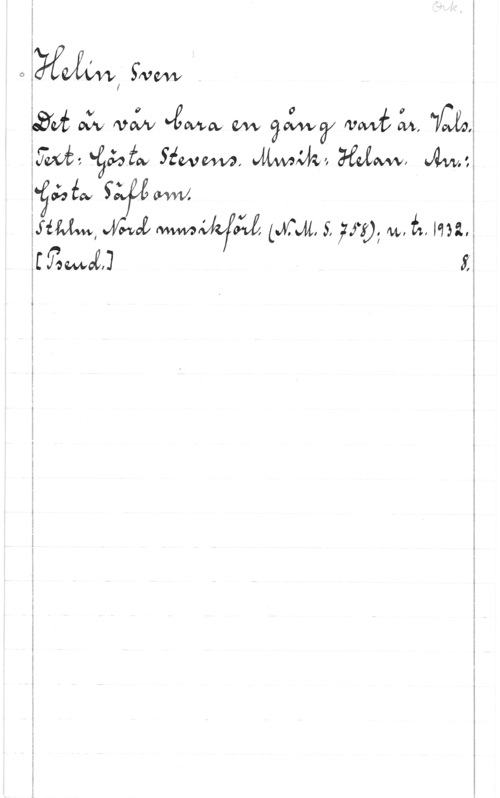 Ork.
Helin, Sven
Det är vår bara en gång vart år. Vals.
Text: Gösta Stevens. Musik: Helan. Arr.:
Gösta Säfbom.
Sthlm, Nord musikförl. (N.M.S. 758); u. tr. 1932.
[Pseud.] 8.